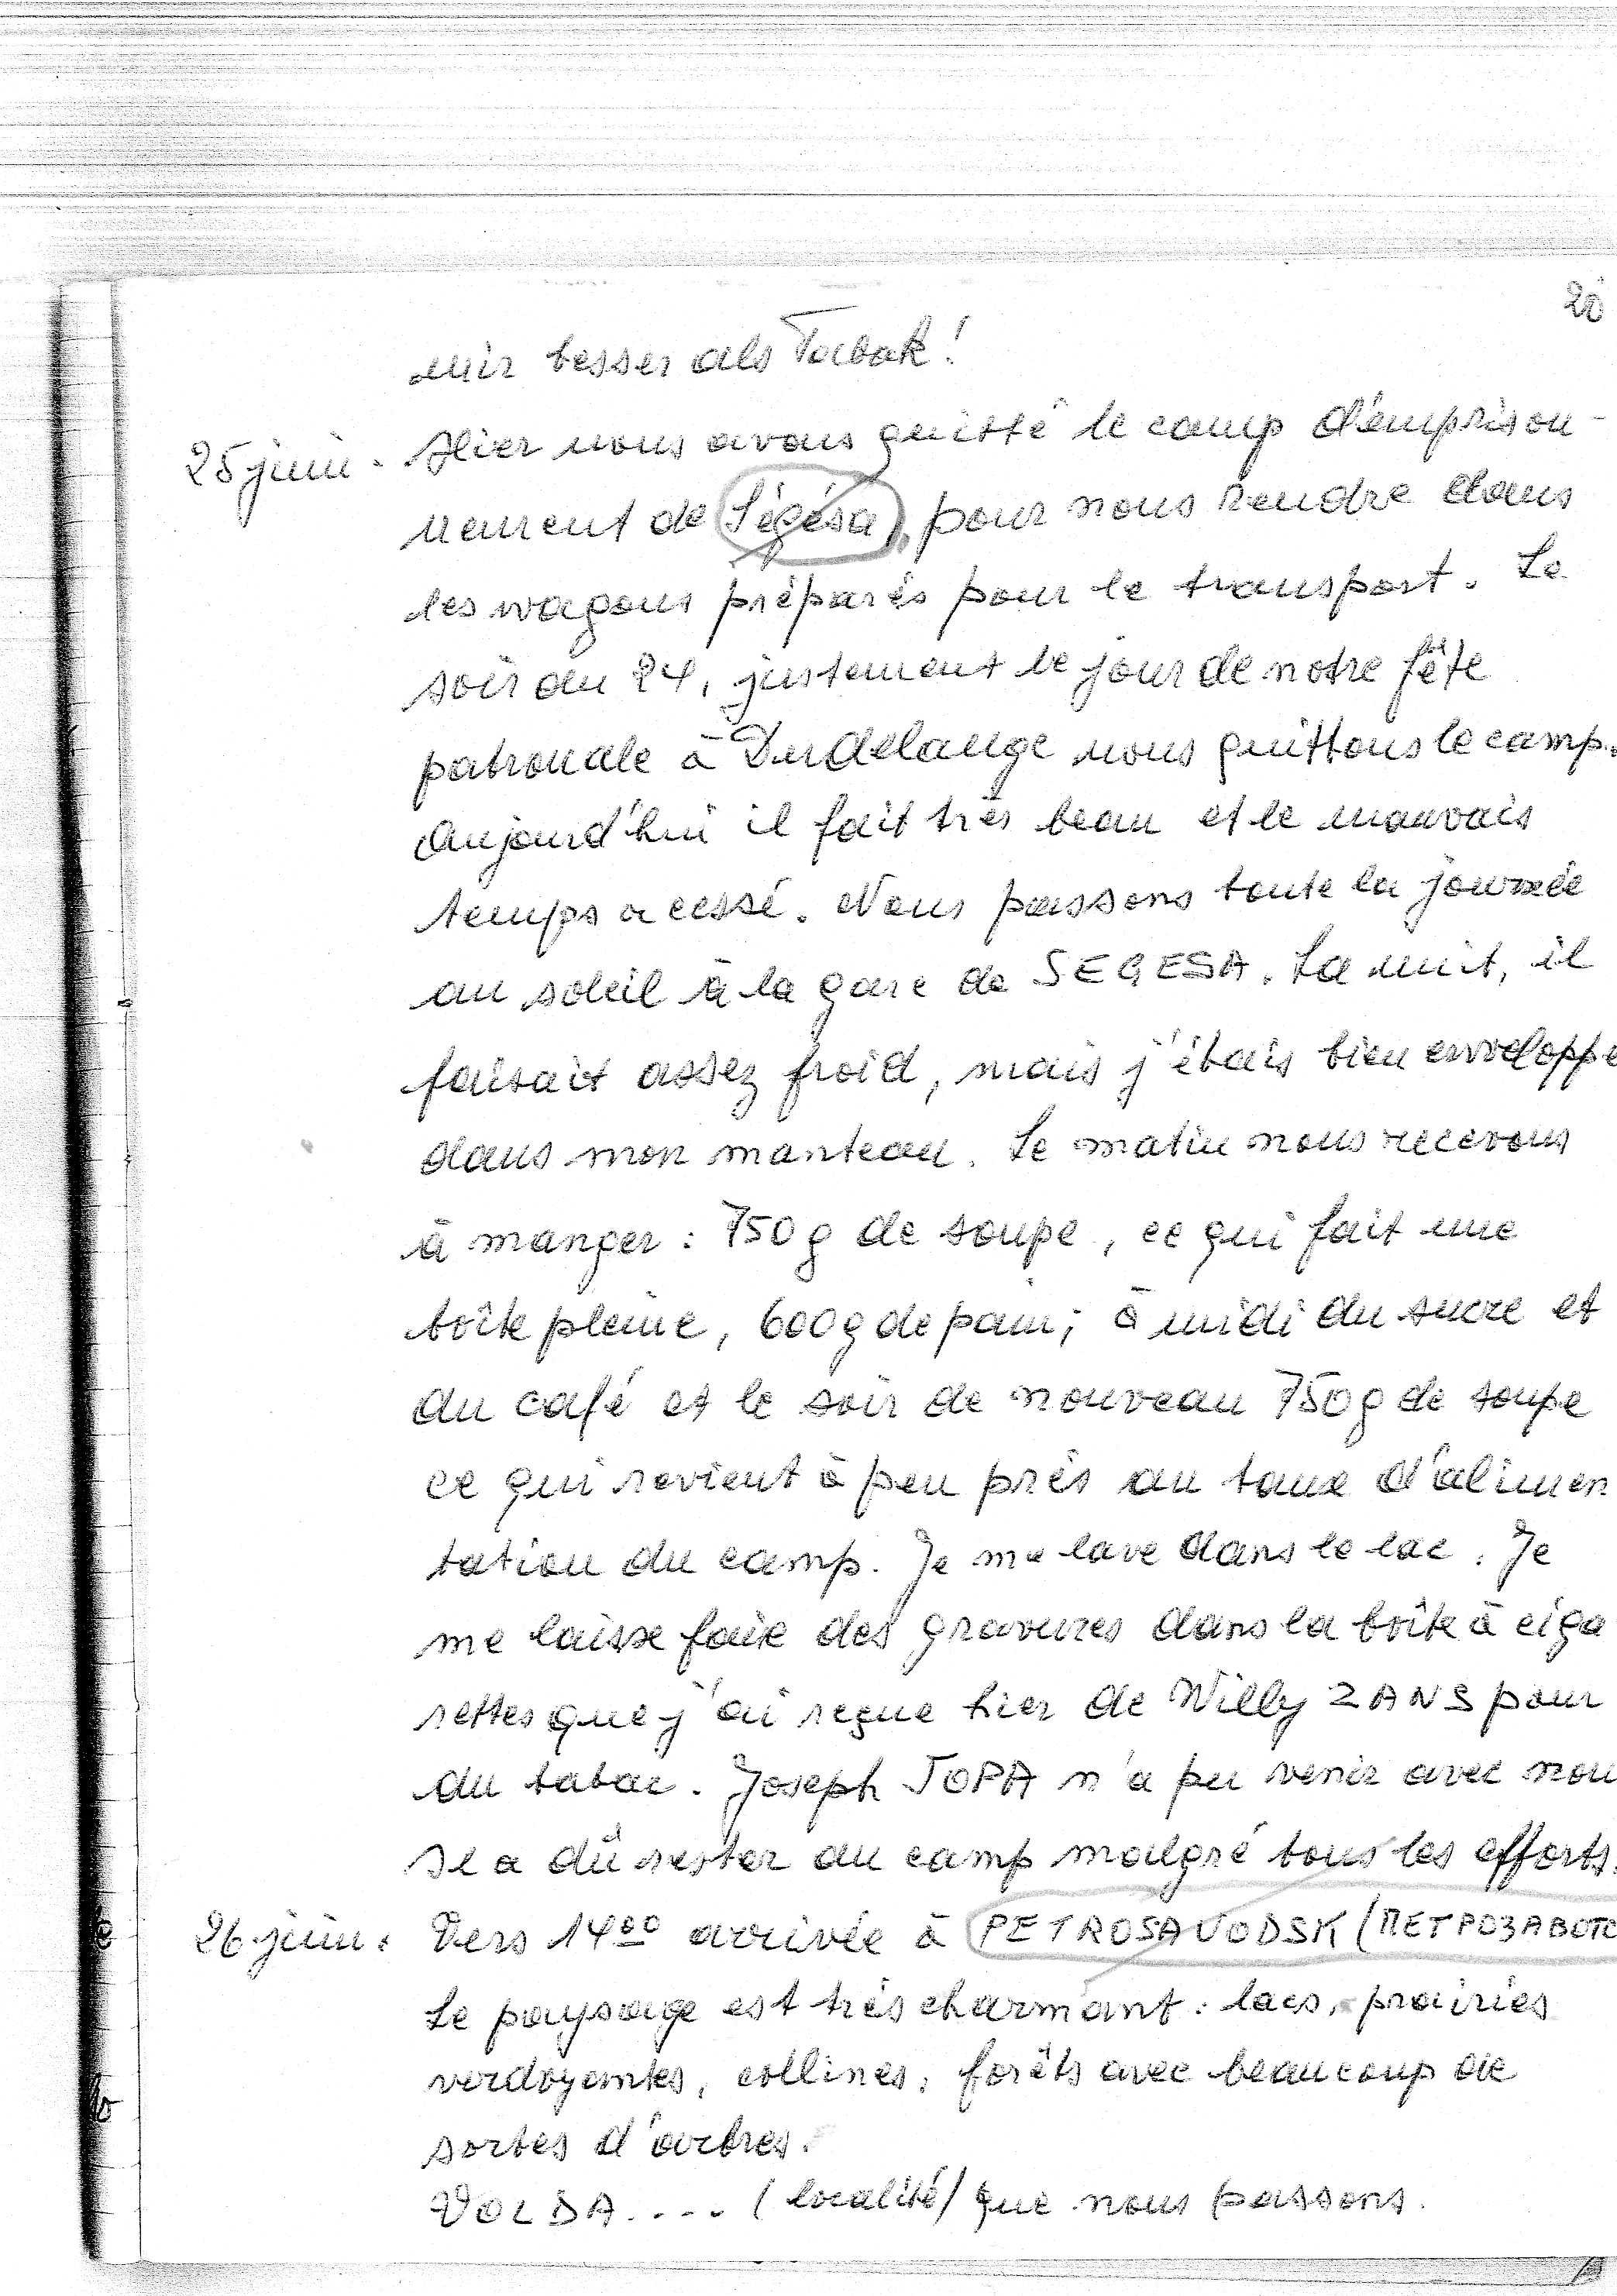 20
mir besser als Tabak!
25 juin. Hier nous avons quitté le camp d'emprison-
nement de Ségésa, pour nous rendre dans
les wagons préparés pour le transport. Le
soir du 24, justement le jour de notre fête
patronale à Dudelange nous quittons le camp.
Aujourd'hui il fait très beau et le mauvais
temps a cessé. Nous passons toute la journée
au soleil à la gare de SEGESA. La nuit, il
faisait assez froid, mais j'étais bien enveloppé
dans mon manteau. Le matin nous recevons
à manger : 750 g de soupe, ce qui fait une
boîte pleine, 600 g de pain; à midi du sucre et
du café et le soir de nouveau 750 g de soupe
ce qui revient à peu près au taux d'alimen
tation du camp. Je me lave dans le lac. Je
me laisse faire des gravures dans la boîte à ciga
rettes que j'ai reçue hier de Willy ZANS pour
du tabac. Joseph JOPA n'a pu venir avec nou
Il a dû rester au camp malgré tous les efforts.
26 juin: Vers 14°° arrivée à PETROSAVODSK (ПЕТРОЗАВОТС
Le paysage est très charmant : lacs, prairies
verdoyantes, collines, forêts avec beaucoup de
sortes d'arbres.
VOLDA.... (localité) que nous passons.